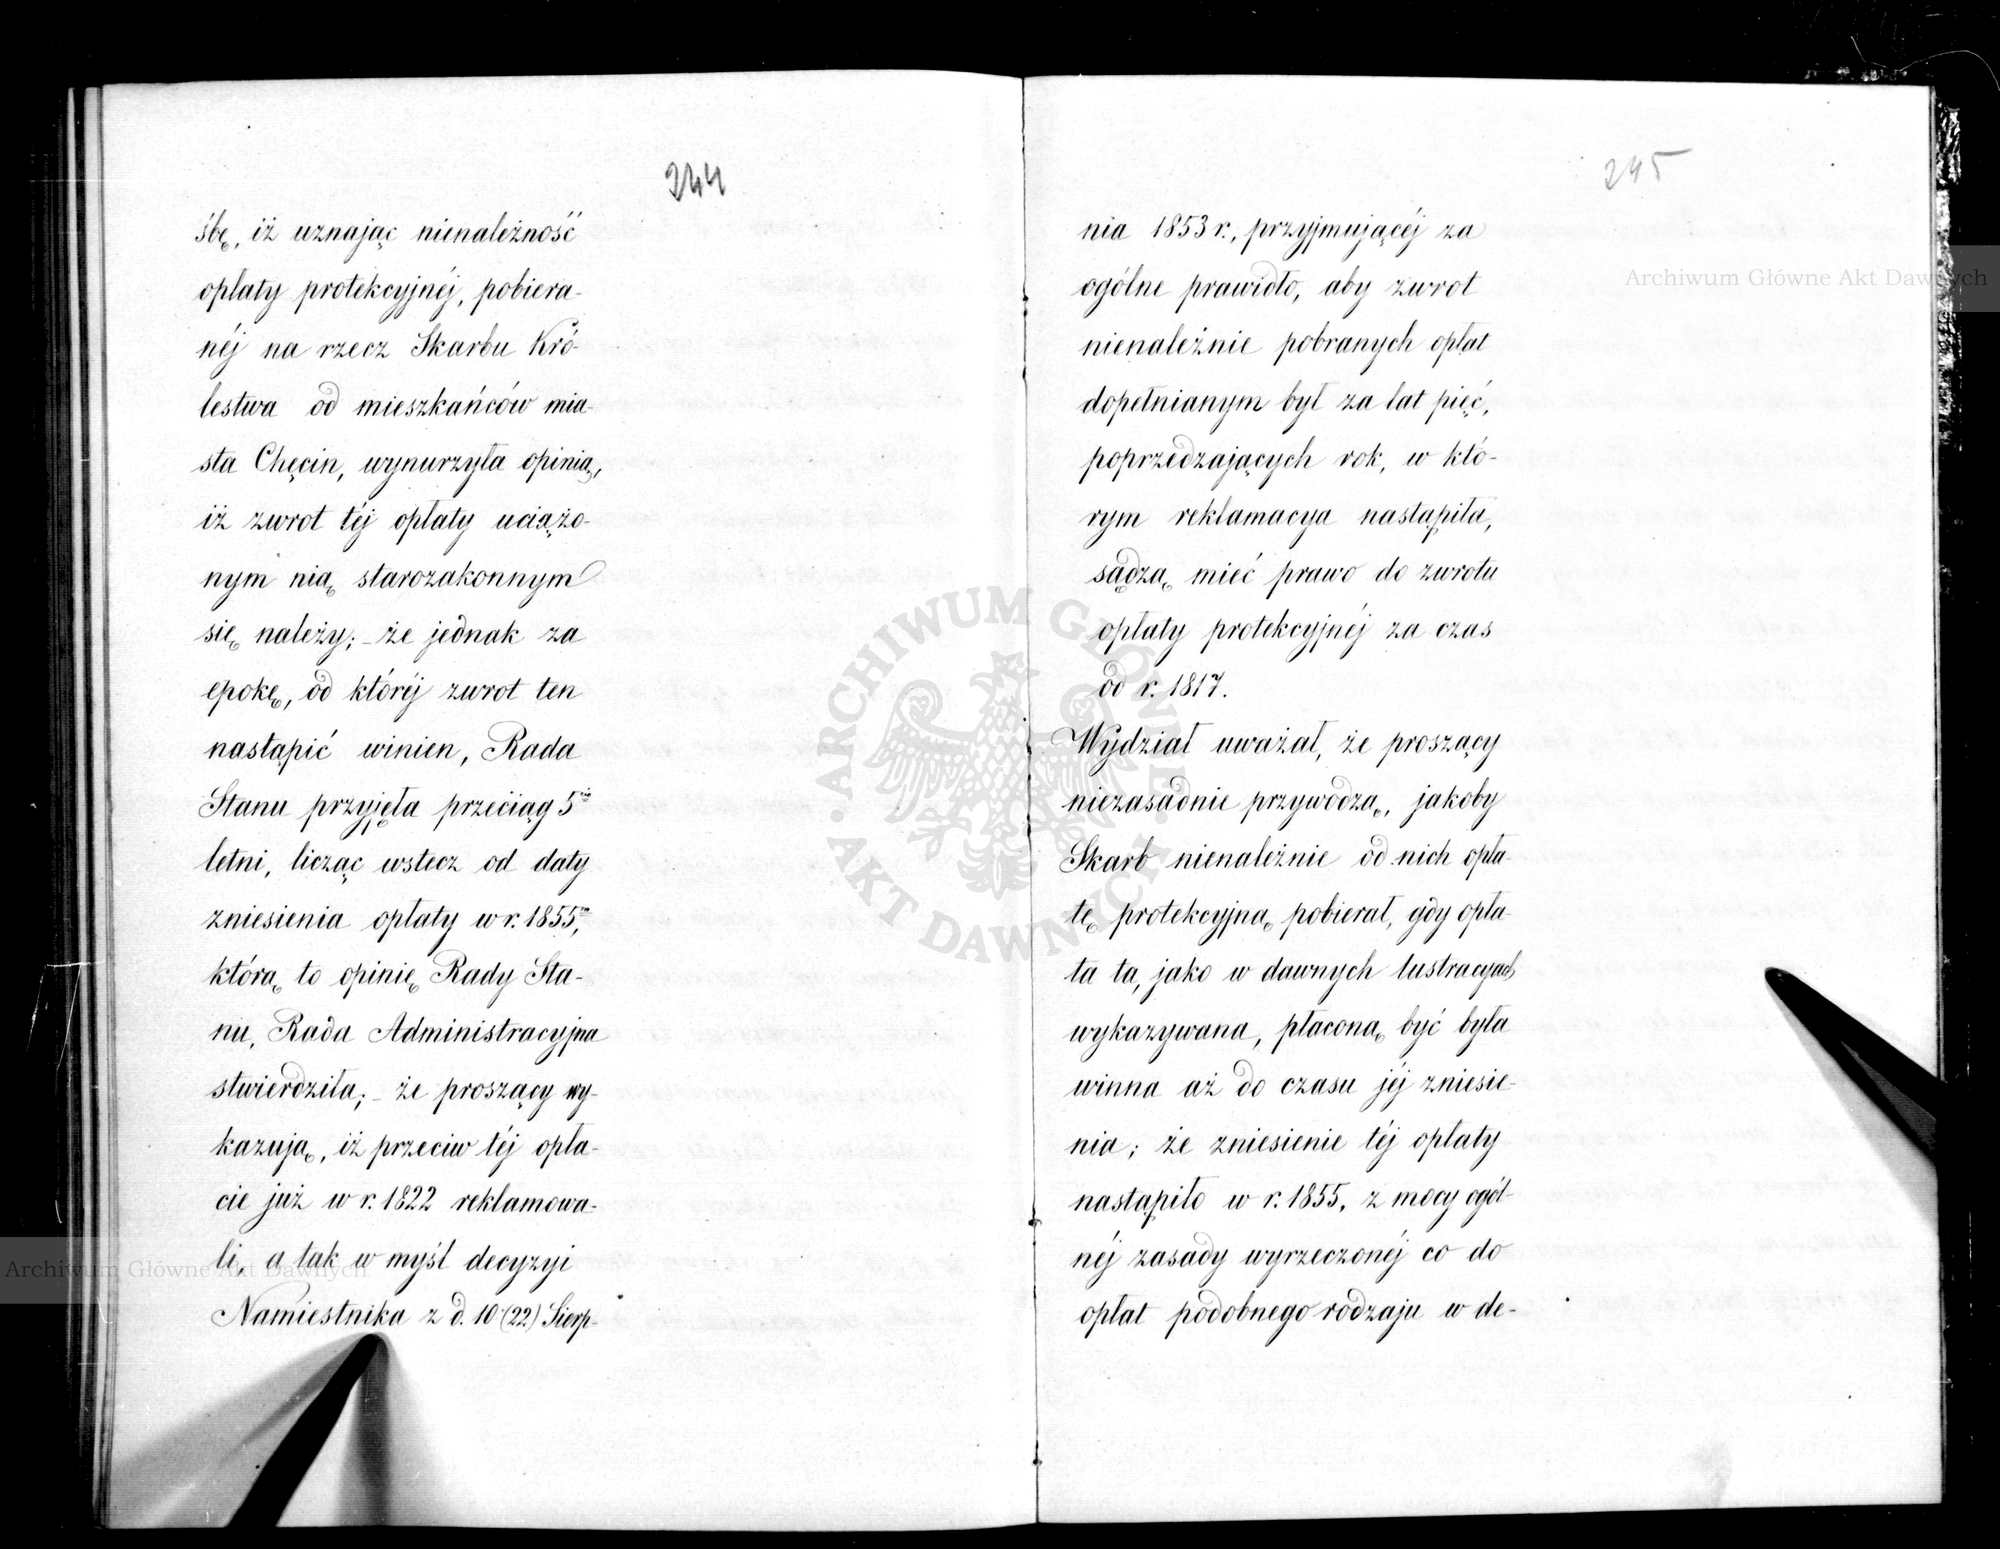 244
śbę, iż uznając nienależność
opłaty protekcyjnéj, pobiera-
néj na rzecz Skarbu Kró-
lestwa od mieszkańców mia-
sta Chęcin, wynurzyła opinią,
iż zwrot téj opłaty uciążo-
nym nią starozakonnym
się należy; - że jednak za
epokę, od któréj zwrot ten
nastąpić winien, Rada
Stanu przyjęła przeciąg 5cio
letni, licząc wstecz od daty
zniesienia opłaty w r. 1855m,
którą to opinię Rady Sta-
nu, Rada Administracyjna
stwierdziła; - że proszący wy-
kazują, iż przeciw téj opła-
cie już w r. 1822 reklamowa-
li, a tak w myśl decyzyi
Namiestnika z d. 10 (22) Sierp-
245
nia 1853 r., przyjmującéj za
ogólne prawidło, aby zwrot
nienależnie pobranych opłat
dopełnianym był za lat pięć,
poprzedzających rok, w któ-
rym reklamacya nastąpiła,
sądzą mieć prawo do zwrotu
opłaty protekcyjnéj za czas
od r. 1817.
Wydział uważał, że proszący
niezasadnie przywodzą, jakoby
Skarb nienależnie od nich opła-
tę protekcyjną pobierał, gdy opła-
ta ta, jako w dawnych lustracyach
wykazywana, płaconą być była
winna aż do czasu jéj zniesie-
nia; że zniesienie téj opłaty
nastąpiło w r. 1855, z mocy ogól-
néj zasady wyrzeczonéj co do
opłat podobnego rodzaju w de-
Archiwum Główne Akt Dawnych
Archiwum Główne Akt Dawnych
ARCHIWUM GŁÓWNE AKT DAWNYCH